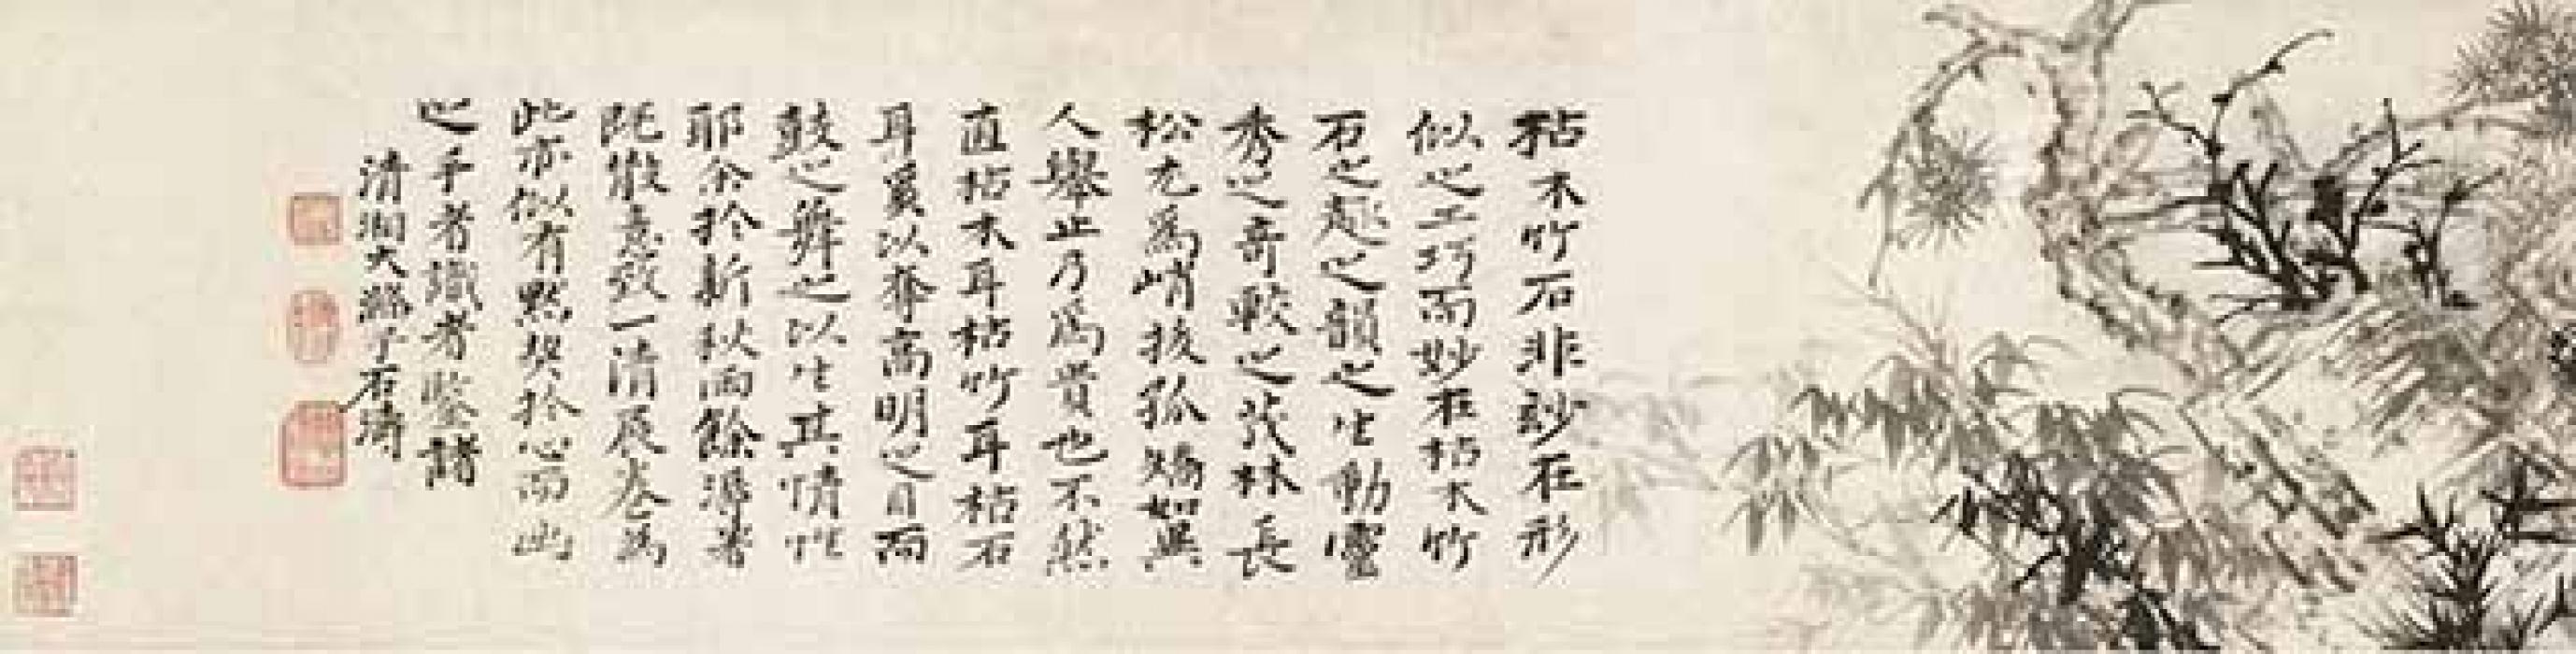 枯木竹石非妙在形
似之工巧而妙在枯木竹
石之趣之韻之生動靈
秀之奇較之茂林長
松尤為峭拔孤矯如異
人舉止乃為貴也不然
直枯木耳枯竹耳枯石
耳奚以奪高明之目而
鼓之舞之以生其情性
耶余於新秋雨餘湯著
既散意致一清展卷為
此亦似有默契於心而出
之手者識者鑒諸
清湘大滌子石濤